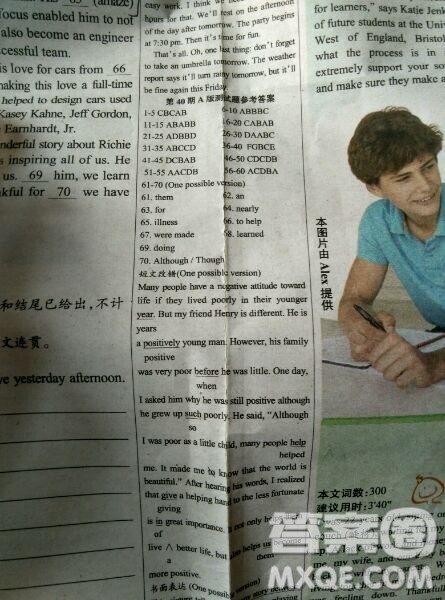 (amaze)
focus enabled him to not
also become an engineer
cessful team.
is love for cars from 66
making this love a full-time
helped to design cars used
Kasey Kahne, Jeff Gordon,
Earnhardt, Jr.
nderful story about Richie
s inspiring all of us. He
us. 69 him, we learn
nkful for 70 we have
和结尾已给出，不计
文连贯。
ve yesterday afternoon.
easy work. I think we
hours for that. We'll rest on the afternoon
of the day after tomorrow. The party begins
at 7:30 pm. Then it's time for fun.
That's all. Oh, one last thing: don't forget
to take an umbrella tomorrow. The weather
report says it'll turn rainy tomorrow, but it'll
be fine again this Friday.
第40期A版测试题参考答案
1-5 CBCAB 6-10 ABBBC
11-15 ABABB 16-20 CABAB
21-25 ADBBD 26-30 DAABC
31-35 ABCCD 36-40 FGBCE
41-45 DCBAB 46-50 CDCDB
51-55 AACDB 56-60 ACDBA
61-70 (One possible version)
61. them 62. an
63. for 64. nearly
65. illness 66. to help
67. were made 68. learned
69. doing
70. Although / Though
短文改错(One possible version)
Many people have a negative attitude toward
life if they lived poorly in their younger
year. But my friend Henry is different. He is
years
a positively young man. However, his family
positive
was very poor before he was little. One day,
when
I asked him why he was still positive although
he grew up such poorly. He said, "Although
so
I was poor as a little child, many people help
helped
me. It made me to know that the world is
beautiful." After hearing his words, I realized
that give a helping hand to the less fortunate
giving
is in great importance.
of
live ∧ better life, but
them
more positive.
书面表达 (One possible version)
for learners," says Katie
of future students at the
West of England, Bristol
what the process is in
extremely support your
and make sure they make a
本图片由 Alex 提供
本文词数：300
建议用时：3'40"
答案圈
MXQE.COM